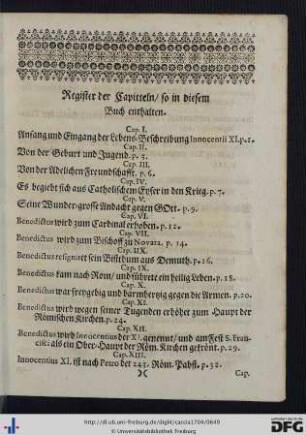 Register der Capitteln/ so in diesem
Buch enthalten.
Cap. I.
Anfang und Eingang der Lebens-Beschreibung Innocentii XI. p. 1.
Cap. II.
Von der Geburt und Jugend. p. 3.
Cap. III.
Von der Adelichen Freundschafft. p. 6.
Cap. IV.
Es begiebt sich aus Catholischem Eyfer in den Krieg. p. 7.
Cap. V.
Seine Wunder-grosse Andacht gegen GOtt. p. 9.
Cap. VI.
Benedictus wird zum Cardinal erhoben. p. 12.
Cap. VII.
Benedictus wird zum Bischoff zu Novara. p. 14.
Cap. IIX.
Benedictus resigniert sein Bistdum aus Demuth. p. 16.
Cap. IX.
Benedictus kam nach Rom/ und führete ein heilig Leben. p. 18.
Cap. X.
Benedictus war freygebig und barmhertzig gegen die Armen. p. 20.
Cap. XI.
Benedictus wird wegen seiner Tugenden erhöhet zum Haupt der
Römischen Kirchen. p. 24.
Cap. XII.
Benedictus wird Innocentius der XI. genennt/ und am Fest S. Fran-
cisci als ein Ober-Haupt der Röm. Kirchen gekrönt. p. 29.
Cap. XIII.
Innocentius XI. ist nach Petro der 243. Röm. Pabst. p. 32.
)( Cap.
http://dl.ub.uni-freiburg.de/diglit/cancia1704/0649
© Universitätsbibliothek Freiburg
Gefördert durch
DFG